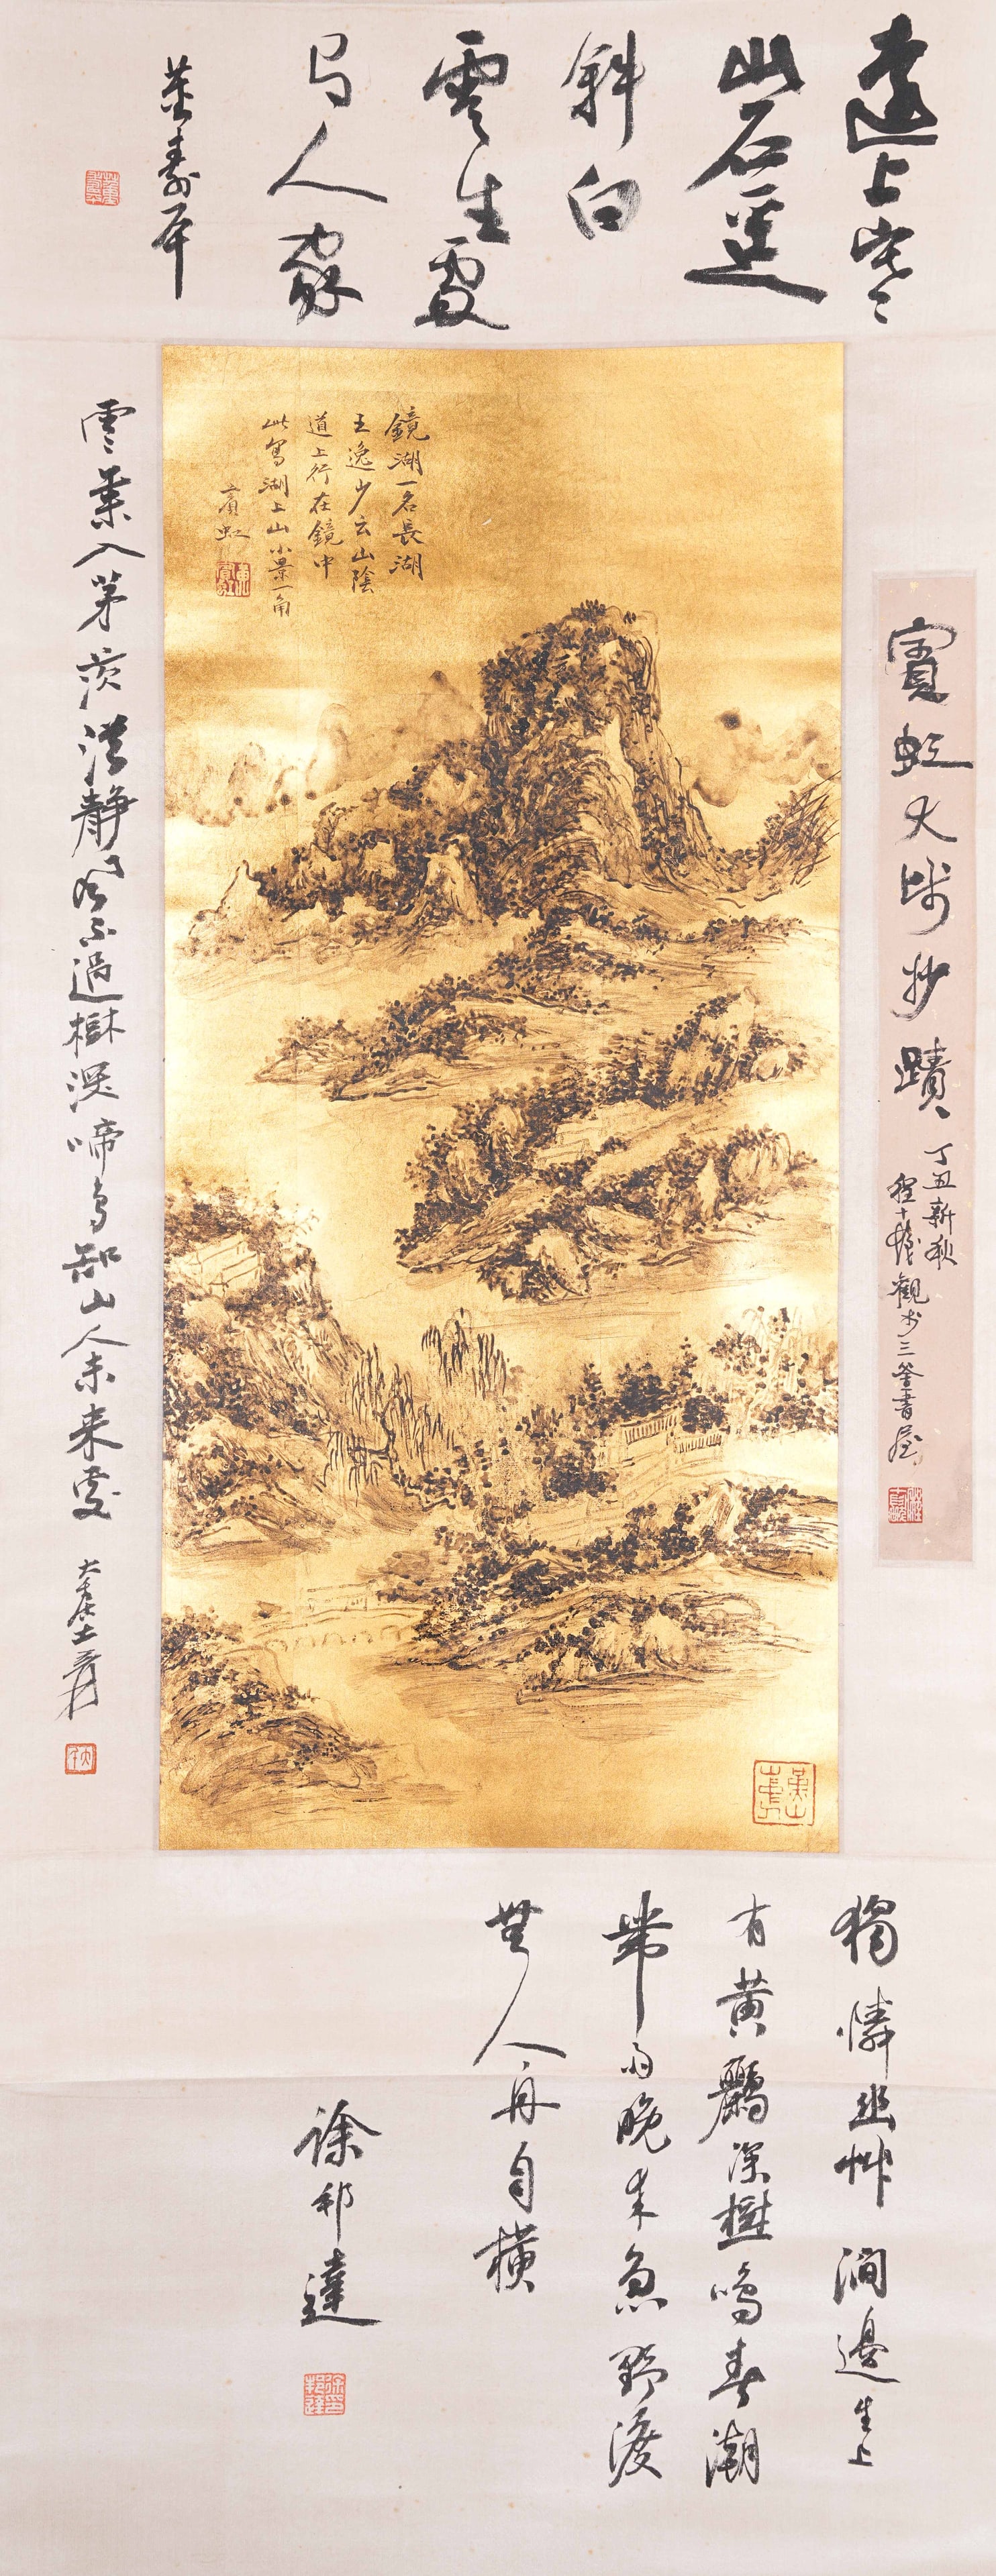 遠上寒
山石逕
斜白
雲生處
有人家
董壽平
鏡湖一名長湖
王逸少云山陰
道上行在鏡中
此寫湖上山小景一角
賓虹
黄賓虹
賓虹大師妙蹟
丁丑新秋
程十髮觀於三釜書屋
雲業入茅茨靜風不過樹深啼鳥知山人未来處
大千居士爰
獨憐幽艸澗邊生上
有黄鸝深樹鳴春潮
帶雨晚来急野渡
無人舟自横
徐邦達